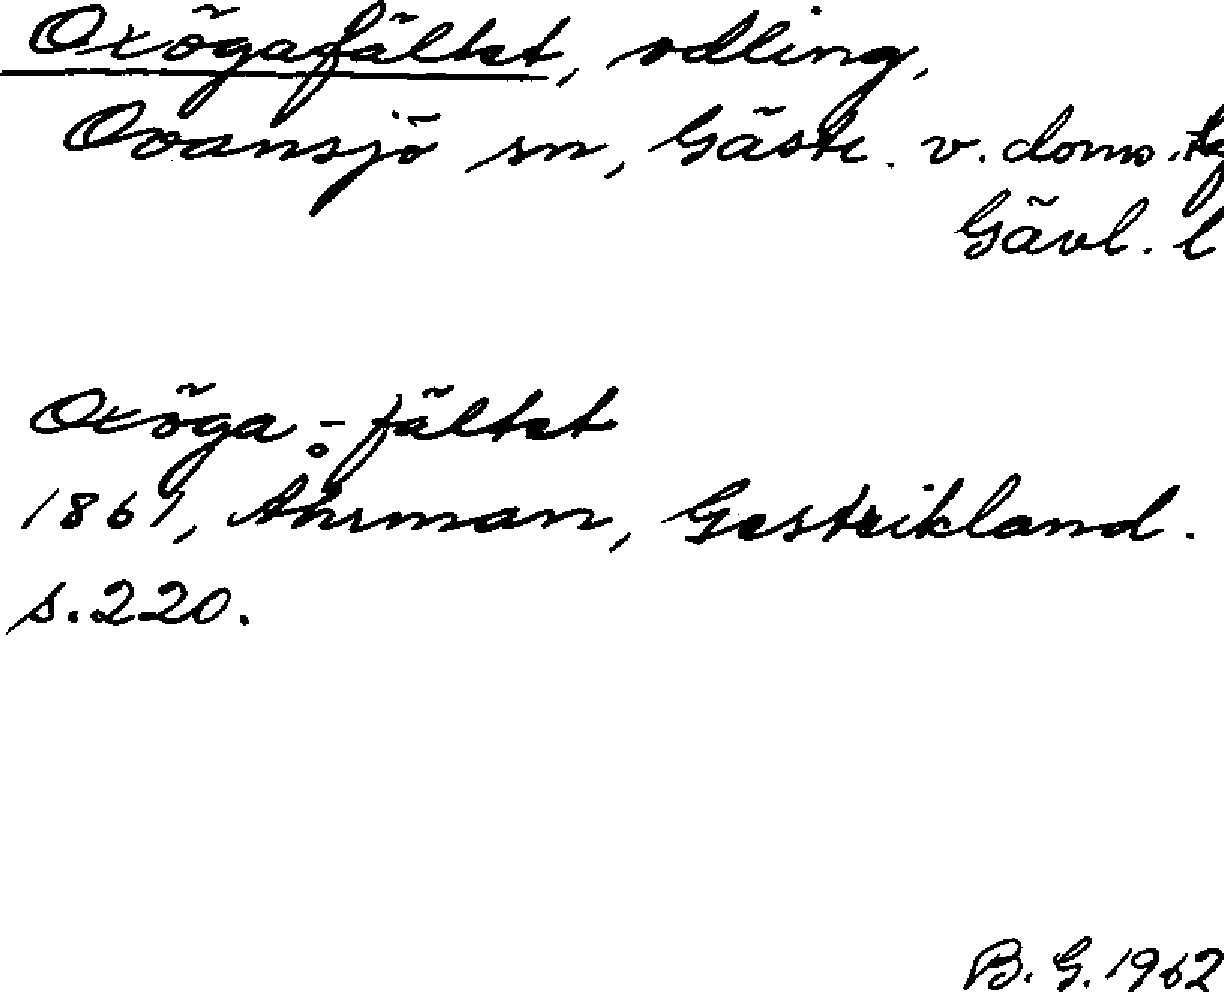 Oxögafältet, odling,
Ovansjö sn, Gästr. v. doms. tg
Gävl. l
Oxöga-fältet
1861, Ahrman, Gestrikland.
s. 220.
B. G. 1962